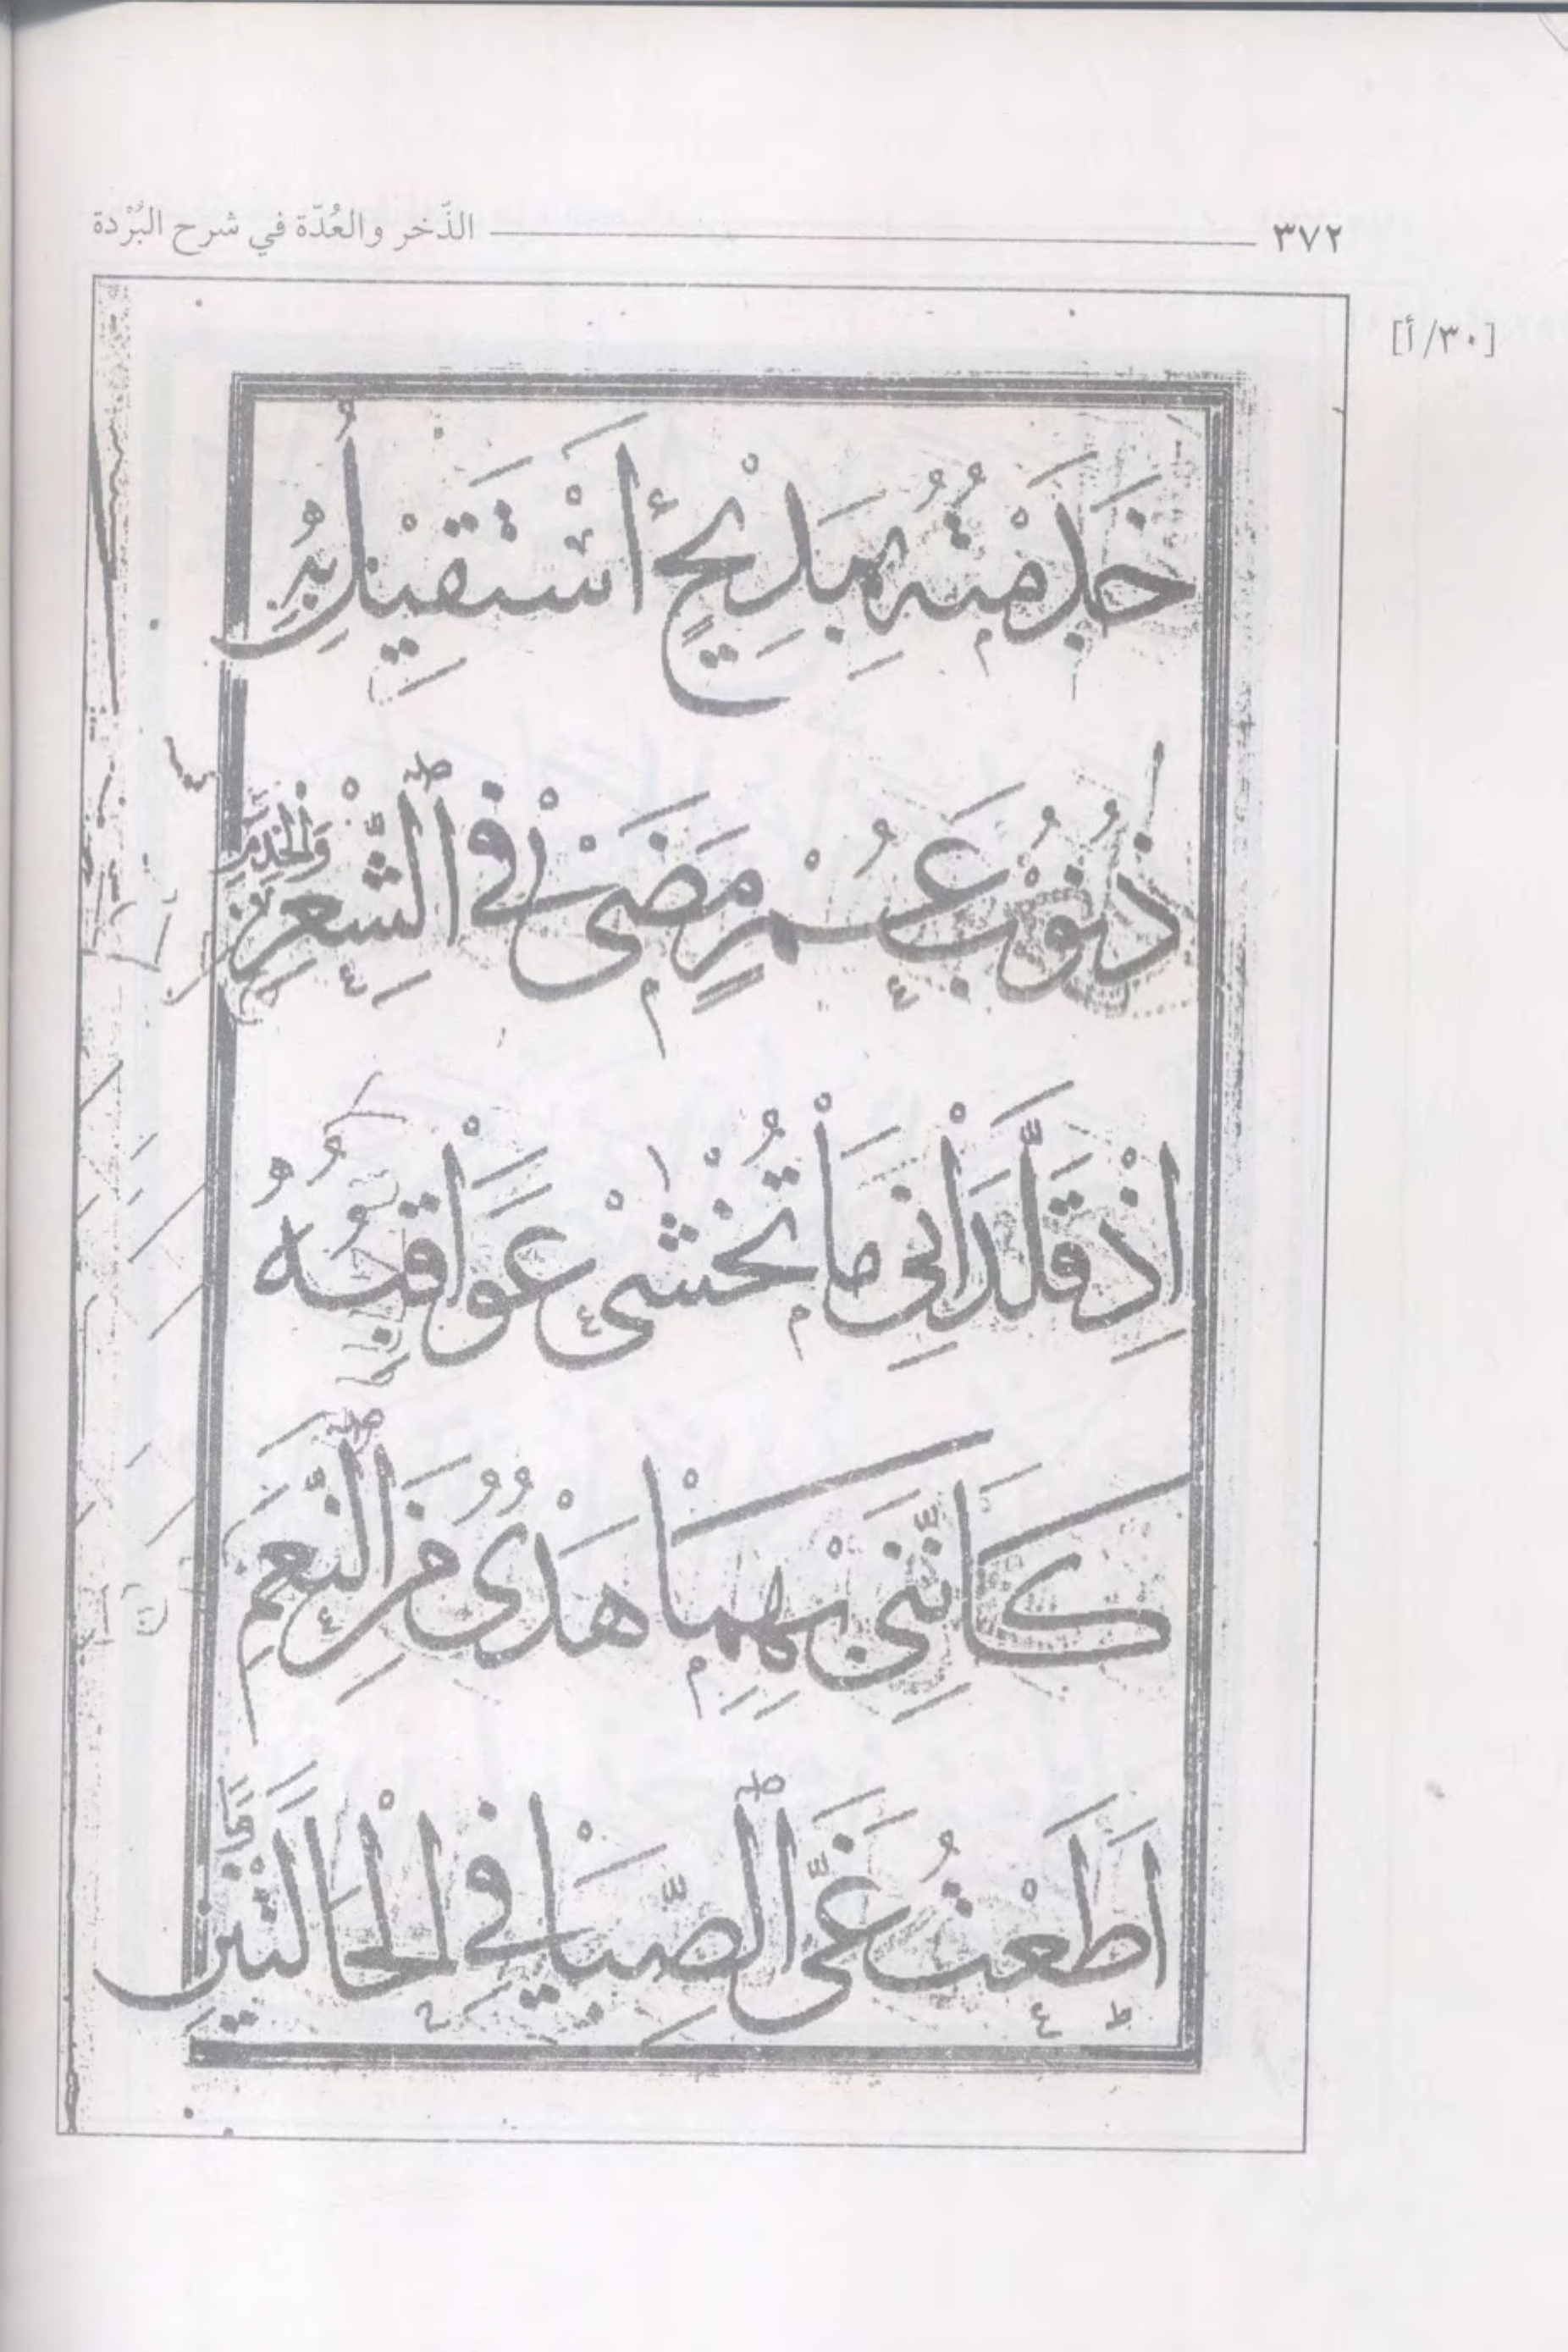 ٣٧٢ الذّخر والعُدّة في شرح البُرْدة
[٣٠/أ]
خَدَمْتُهُ بِمَدِيحٍ أَسْتَقِيلُ بِهِ
ذُنُوبَ عُمْرٍ مَضَىٰ فِي ٱلشِّعْرِ وَالْخِدَمِ
اِذْ قَلَّدَانِيَ مَا تُخْشىٰ عَوَاقِبُهُ
كَاَنَّنِي بِهِمَا هَدْىٌ مِنَ ٱلنَّعَمِ
اَطَعْتُ غَيَّ ٱلصِّبَا فِي الْحَالَتَيْنِ وَمَا